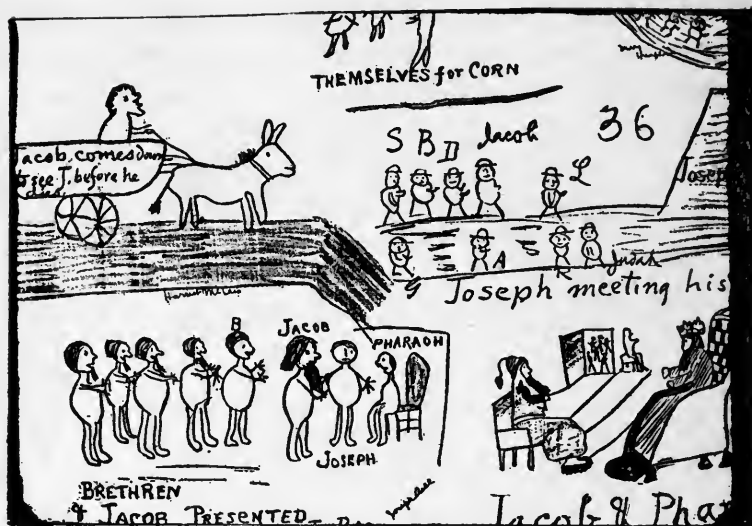 THEMSELVES for CORN
S B D Jacob
36
L
acob, comes down
to see J. before he
Josep
A
R
Judah
Joseph meeting his
B
JACOB
PHARAOH
JOSEPH
BRETHREN
& JACOB PRESENTED
Jacob & Phar